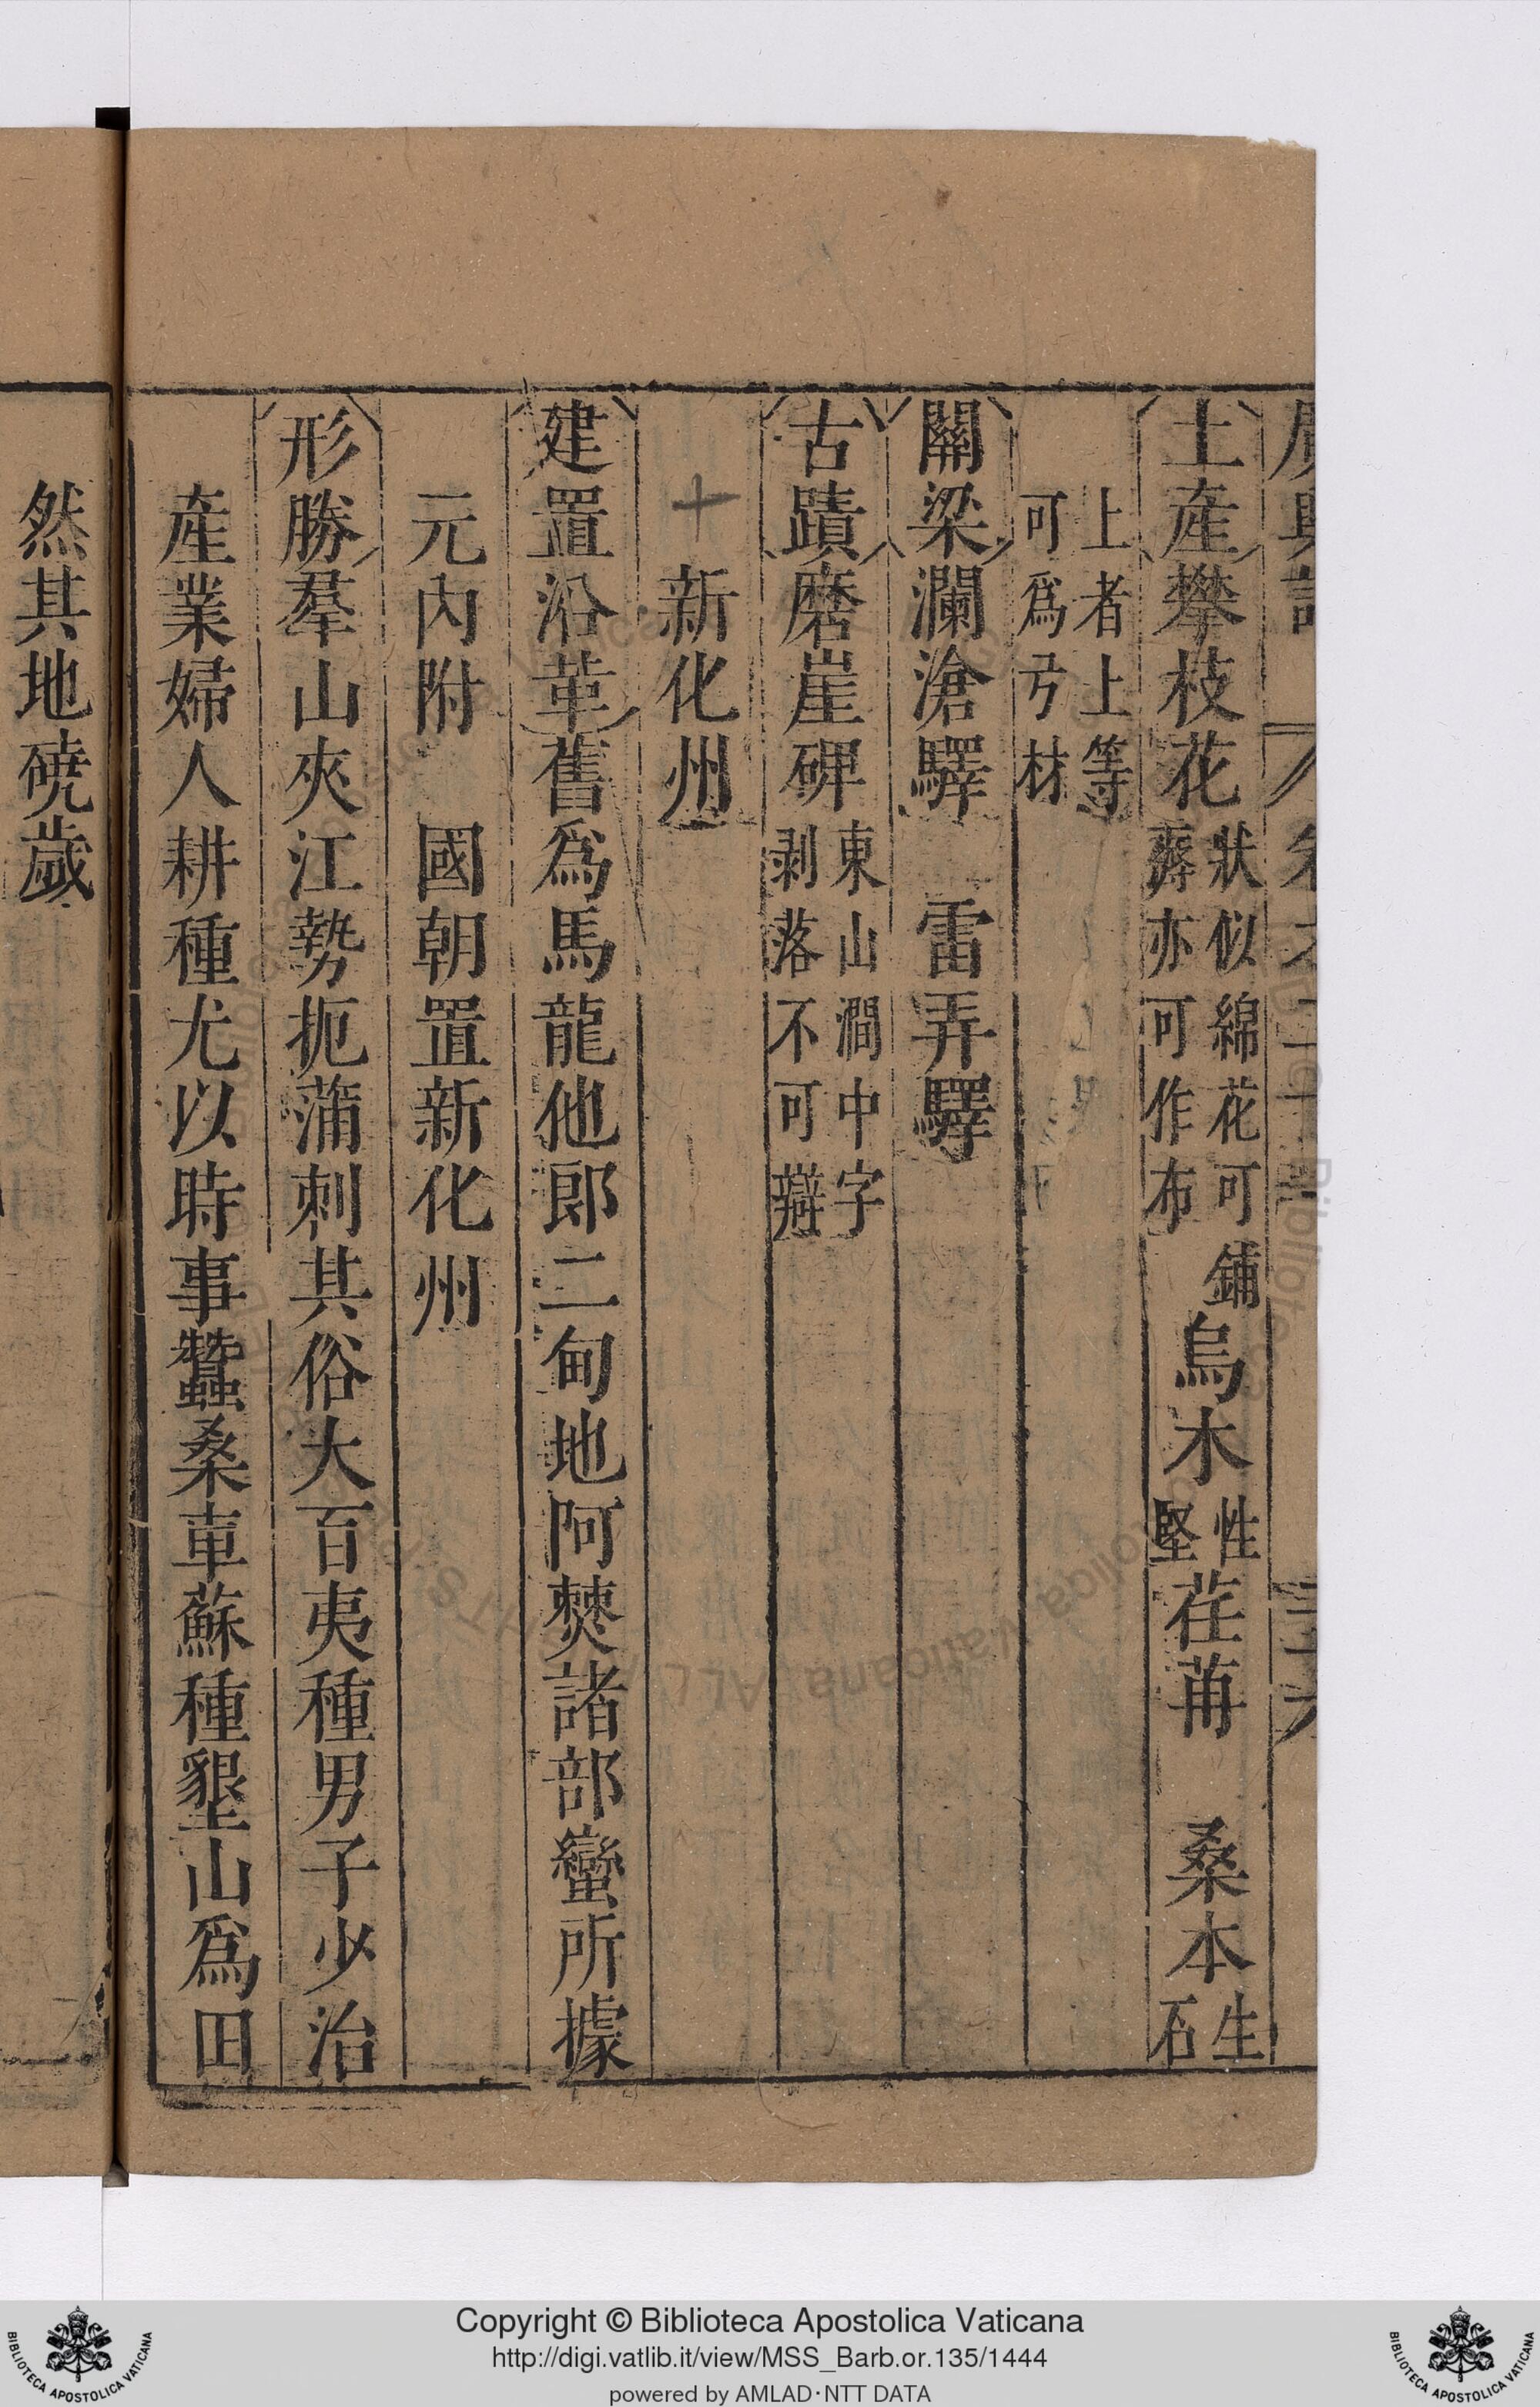 土產攀枝花狀似綿花可鋪
褥亦可作布烏木性
堅荏苒 桑本生
石
上者上等
可爲弓材
關梁瀾滄驛 雷弄驛
古蹟磨崖碑東山澗中字
剥落不可辯
新化州
建置沿革舊爲馬龍他郎二甸地阿僰諸部蠻所據
元內附 國朝置新化州
形勝羣山夾江勢扼蒲刺其俗大百夷種男子少治
產業婦人耕種尤以時事蠶桑車蘇種墾山爲田
然其地磽歲
Copyright © Biblioteca Apostolica Vaticana
http://digi.vatlib.it/view/MSS_Barb.or.135/1444
powered by AMLAD·NTT DATA
BIBLIOTECA APOSTOLICA VATICANA
BIBLIOTECA APOSTOLICA VATICANA